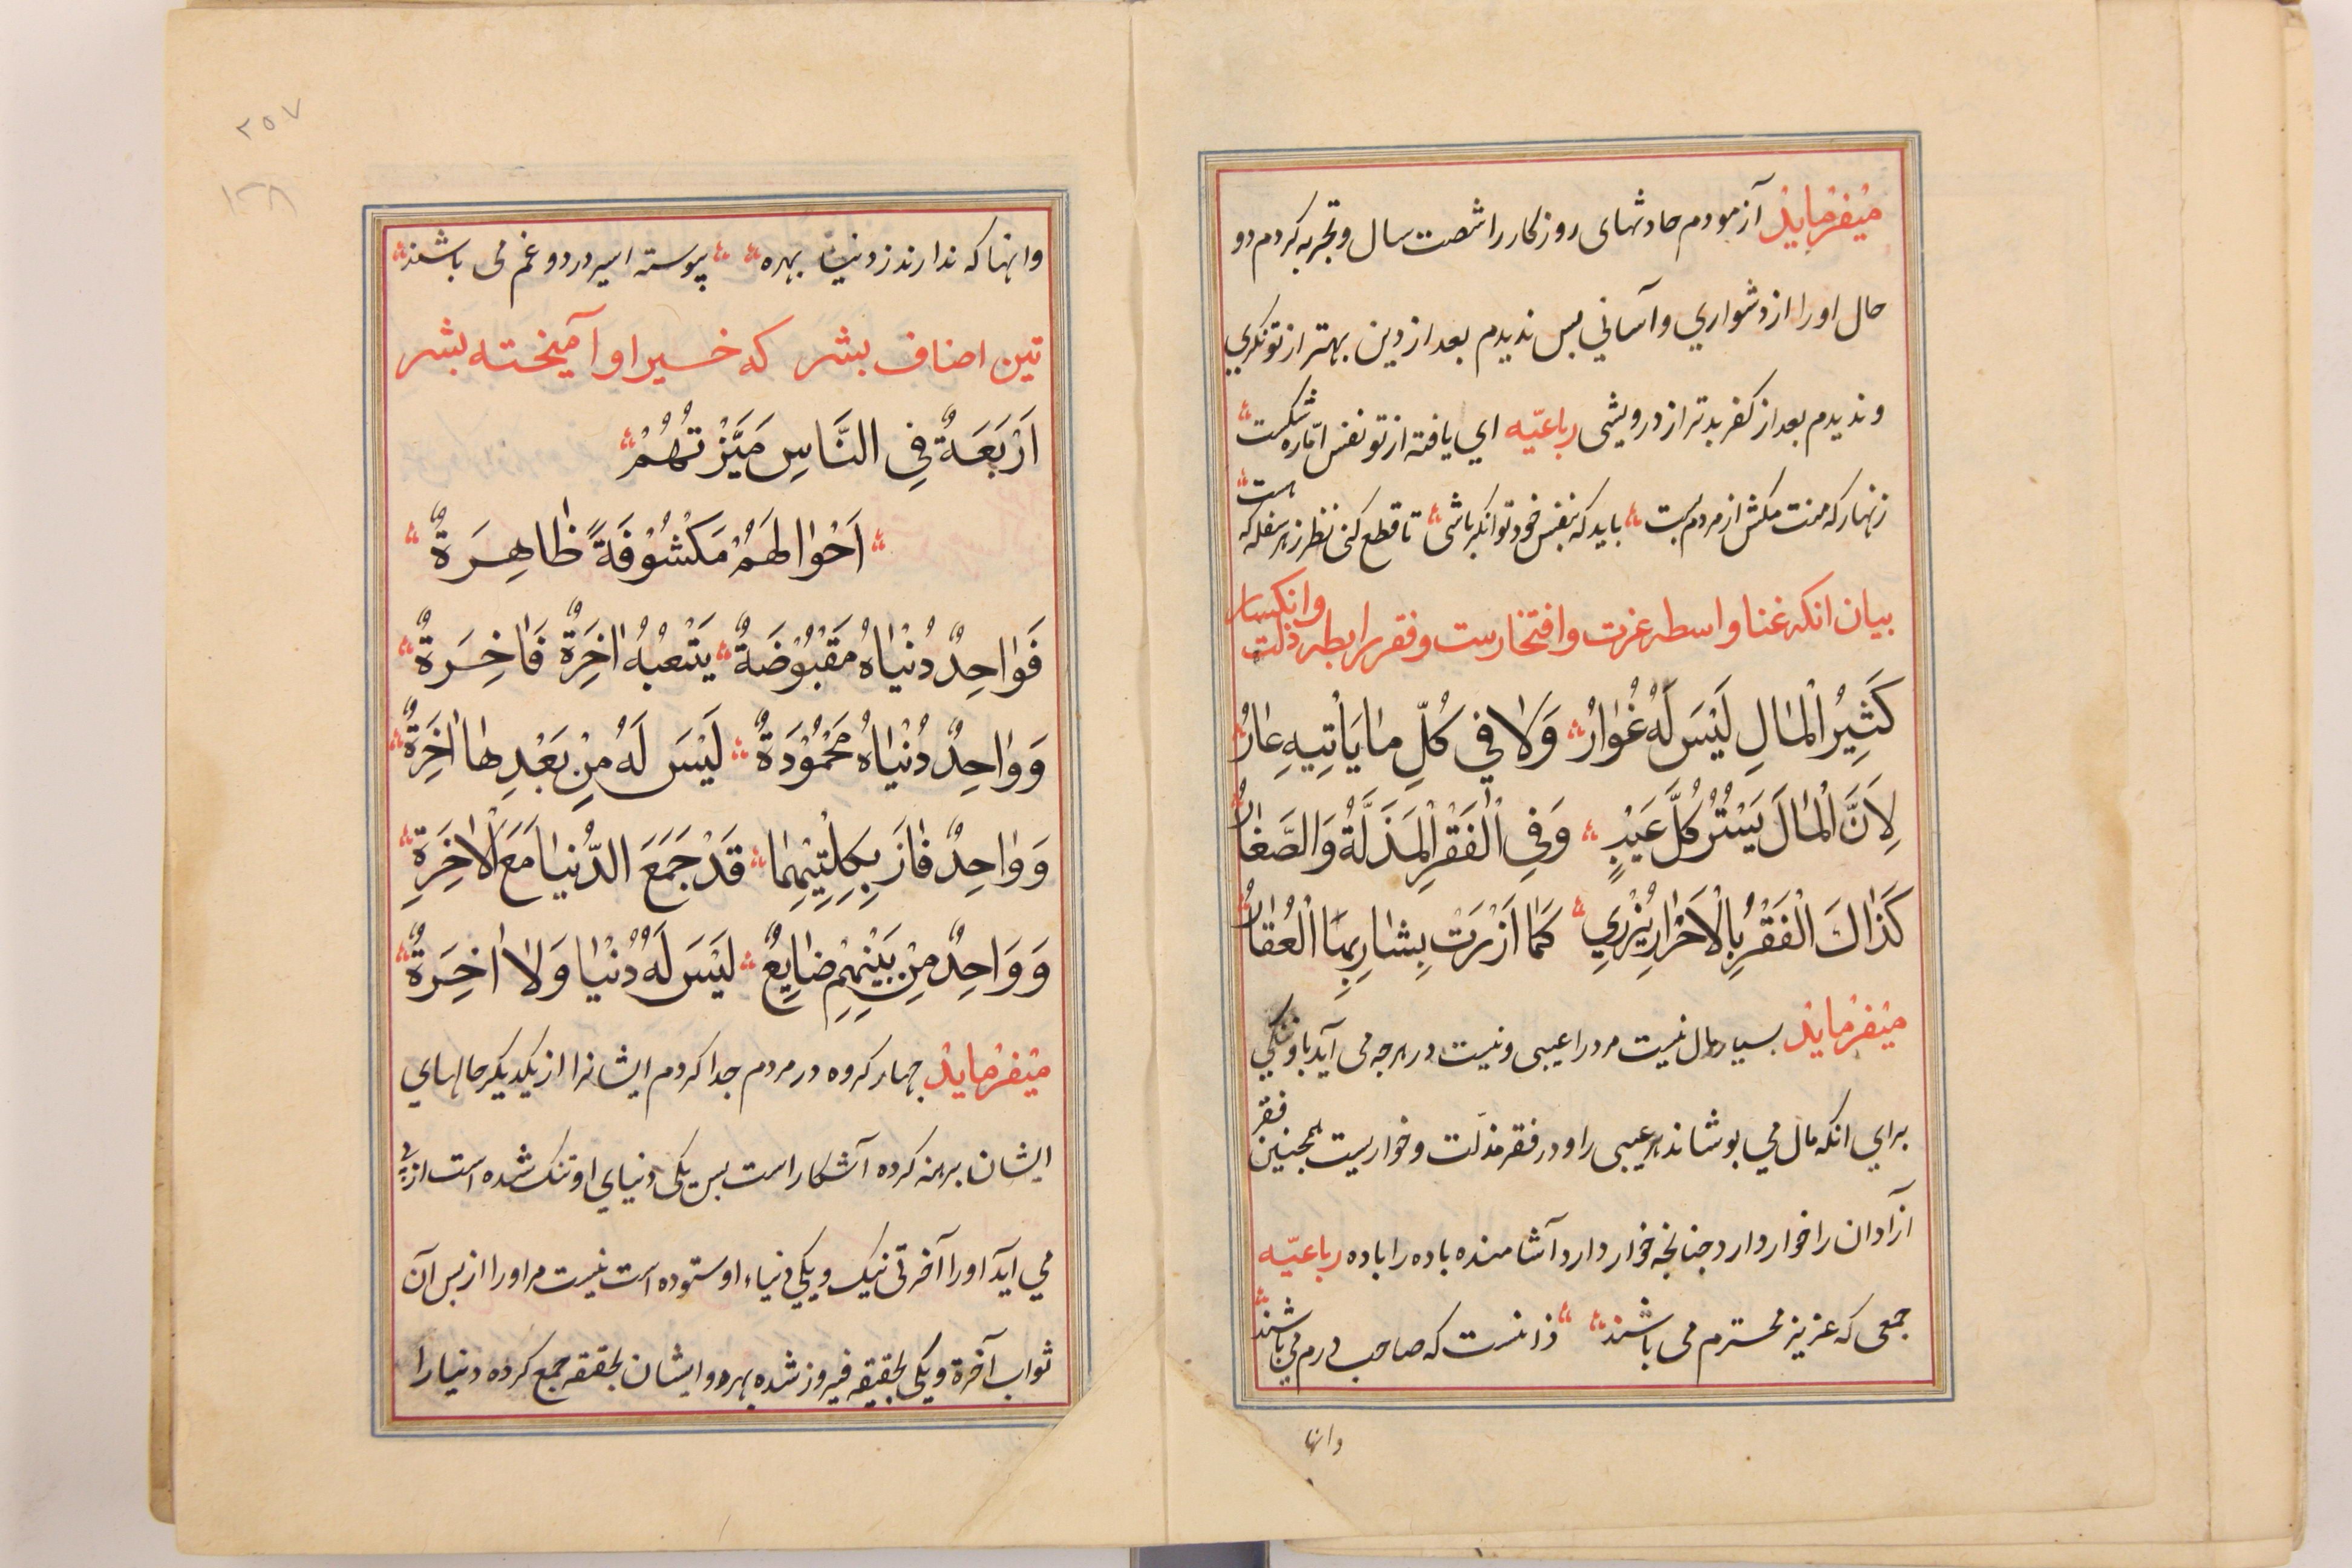 میفرماید آزمودم حادثهای روزکار را شصت سال و تجربه کردم دو
حال او را از دشواري و آساني بس ندیدم بعد از دین بهتر از تونکري
و ندیدم بعد از کفر بدتر از درویشی رباعیّه اي یافته از تو نفس امّاره شکست
زنهار که منت مکش از مردم پست باید که بنفس خود توانکر باشی تا قطع کنی نظر ز هر سفله که هست
بیان انکه غنا واسطه عزت و افتخارست و فقر رابطه ذلت و انکسار
كَثِيرُ الْمَالِ لَيْسَ لَهُ عُوَارٌ وَلَا فِي كُلِّ مَا يَأْتِيهِ عَارٌ
لِاَنَّ الْمَالَ يَسْتُرُ كُلَّ عَيْبٍ وَفِي الْفَقْرِ الْمَذَلَّةُ وَالصَّغَارُ
كَذَاكَ الْفَقْرُ بِالْاَحْرَارِ يُزْرِي كَمَا اَزْرَتْ بِشَارِبِهَا الْعُقَارُ
میفرماید بسیار مال نیست مر او را عیبی و نیست در هرچه می آید باو ننکي
براي انکه مال مي بوشاند هر عیبی را و در فقر مذلّت و خواریست همجنین فقر
آزادان را خوار دارد جنانچه خوار دارد آشامنده باده را باده رباعیّه
جمعی که عزیز محترم می باشند ز انست که صاحب درم می باشند
وانها
۲۵۷
۱۲۸
وانها که ندارند ز دنیا بهره پیوسته اسیر درد و غم می باشند
تبین اصناف بشر که خیر او آمیخته بشر
اَرْبَعَةٌ فِي النَّاسِ مَيَّزْتُهُمْ
اَحْوَالُهُمْ مَكْشُوْفَةٌ ظَاهِرَةٌ
فَوَاحِدٌ دُنْيَاهُ مَقْبُوْضَةٌ يَتْبَعُهُ اٰخِرَةٌ فَاخِرَةٌ
وَوَاحِدٌ دُنْيَاهُ مَحْمُوْدَةٌ لَيْسَ لَهُ مِنْ بَعْدِهَا اٰخِرَةٌ
وَوَاحِدٌ فَازَ بِكِلْتَيْهِمَا قَدْ جَمَعَ الدُّنْيَا مَعَ الْاٰخِرَةِ
وَوَاحِدٌ مِنْ بَيْنِهِمْ ضَايِعٌ لَيْسَ لَهُ دُنْيَا وَلَا اٰخِرَةٌ
میفرماید جهار کروه در مردم جدا کردم ایشانرا از یکدیکر حالهاي
ایشان برهنه کرده آشکار است بس یکی دنیاي او تنک شده است از پی
مي آید او را آخرتی نیک و یکي دنیاء او ستوده است نیست مر او را از بس آن
ثواب آخرة و یکی بحقیقه فیروز شده بهر دو ایشان بحقیقه جمع کرده دنیا را